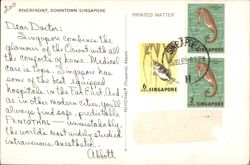 200
RIVERFRONT, DOWNTOWN SINGAPORE
PRINTED MATTER
Dear Doctor:
Singapore combines the
glamour of the Orient with all
the comforts of home. Medical
care is tops. Singapore has
some of the best equipped
hospitals in the Far East. And
as in other modern cities, you'll
always find safe, predictable
PENTOTHAL — unmistakably
the world's most widely studied
intravenous anesthetic.
Abbott
SINGAPORE